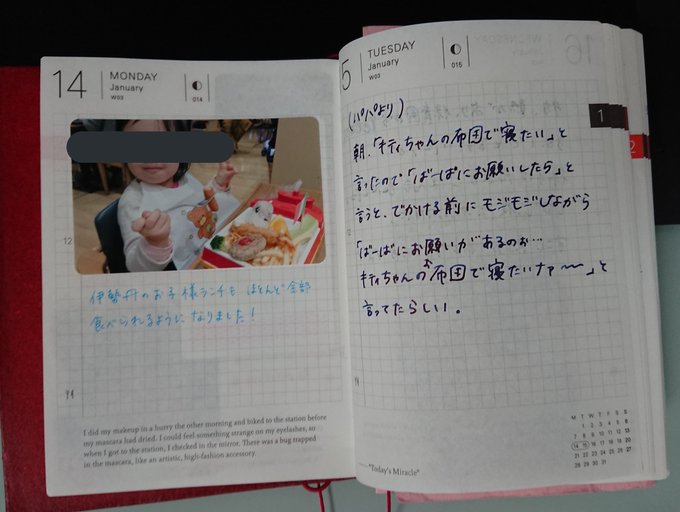 14
MONDAY
January
w03
014
12
伊勢丹のお子様ランチも ほとんど全部
食べられるようになりました！
I did my makeup in a hurry the other morning and biked to the station before
my mascara had dried. I could feel something strange on my eyelashes, so
when I got to the station, I checked in the mirror. There was a bug trapped
in the mascara, like an artistic, high-fashion accessory.
5
TUESDAY
January
w03
015
(パパより)
朝、「キティちゃんの布団で寝たい」と
言ったので「ばーばにお願いしたら」と
言うと、でかける前にモジモジしながら
「ばーばにお願いがあるのぉ…
キティちゃんのお布団で寝たいナァ〜〜」と
言ってたらしい。
"Today's Miracle"
M T W T F S S
1 2 3 4 5 6
7 8 9 10 11 12 13
14 15 16 17 18 19 20
21 22 23 24 25 26 27
28 29 30 31
1
2
16
WEDNESDAY